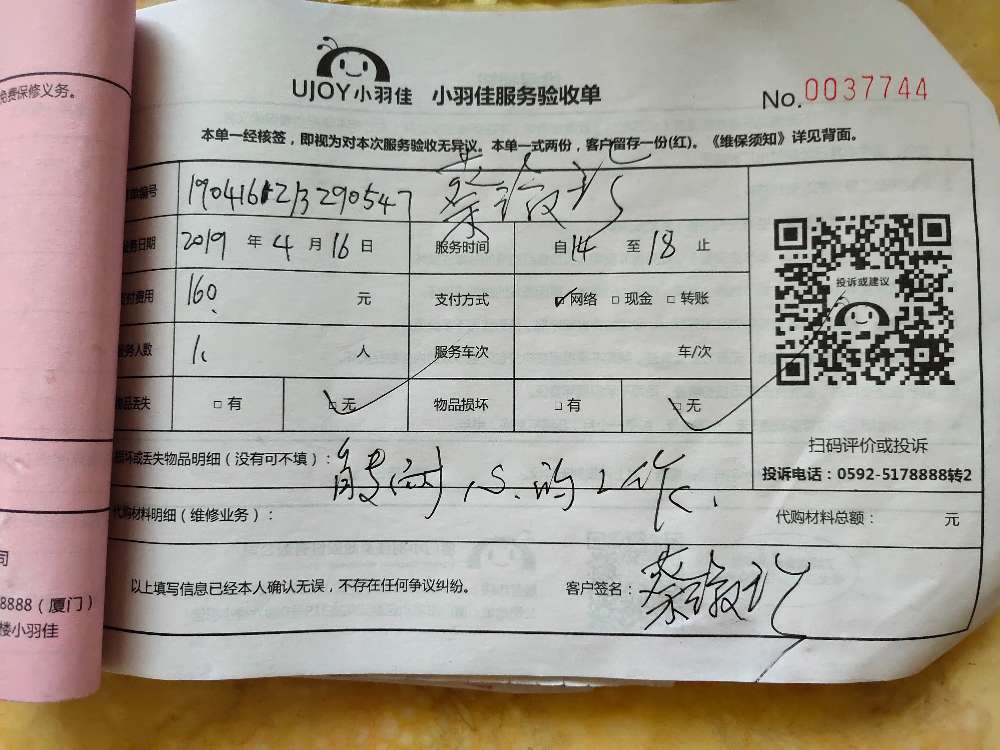 免费保修义务。
UJOY小羽佳 小羽佳服务验收单
No.0037744
本单一经核签，即视为对本次服务验收无异议。本单一式两份，客户留存一份(红)。《维保须知》详见背面。
单编号
务日期 2019 年 4 月 16 日 服务时间 自 14 至 18 止
付费用 160 元 支付方式 ☑网络 □现金 □转账
服务人数 1 人 服务车次 车/次
物品丢失 □有 ☑无 物品损坏 □有 ☑无
投诉或建议
扫码评价或投诉
投诉电话：0592-5178888转2
损坏或丢失物品明细（没有可不填）：
代购材料明细（维修业务）： 代购材料总额： 元
以上填写信息已经本人确认无误，不存在任何争议纠纷。 客户签名：
司
8888（厦门）
楼小羽佳